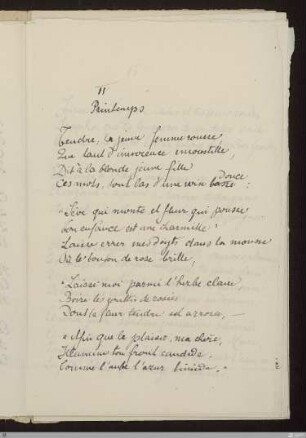 II
Printemps
Tendre, la jeune femme rousse
Que tant d'innocence émoustille,
Dit à la blonde jeune fille
Ces mots, tout bas d'une voix douce :
« Sève qui monte et fleur qui pousse
Ton enfance est une charmille !
Laisse errer mes doigts dans la mousse
Où le bouton de rose brille,
« Laisse moi parmi l'herbe claire
Boire les gouttes de rosée
Dont la fleur tendre est arrosée, —
« Afin que le plaisir, ma chère,
Illumine ton front candide,
Comme l'aube l'azur timide. »